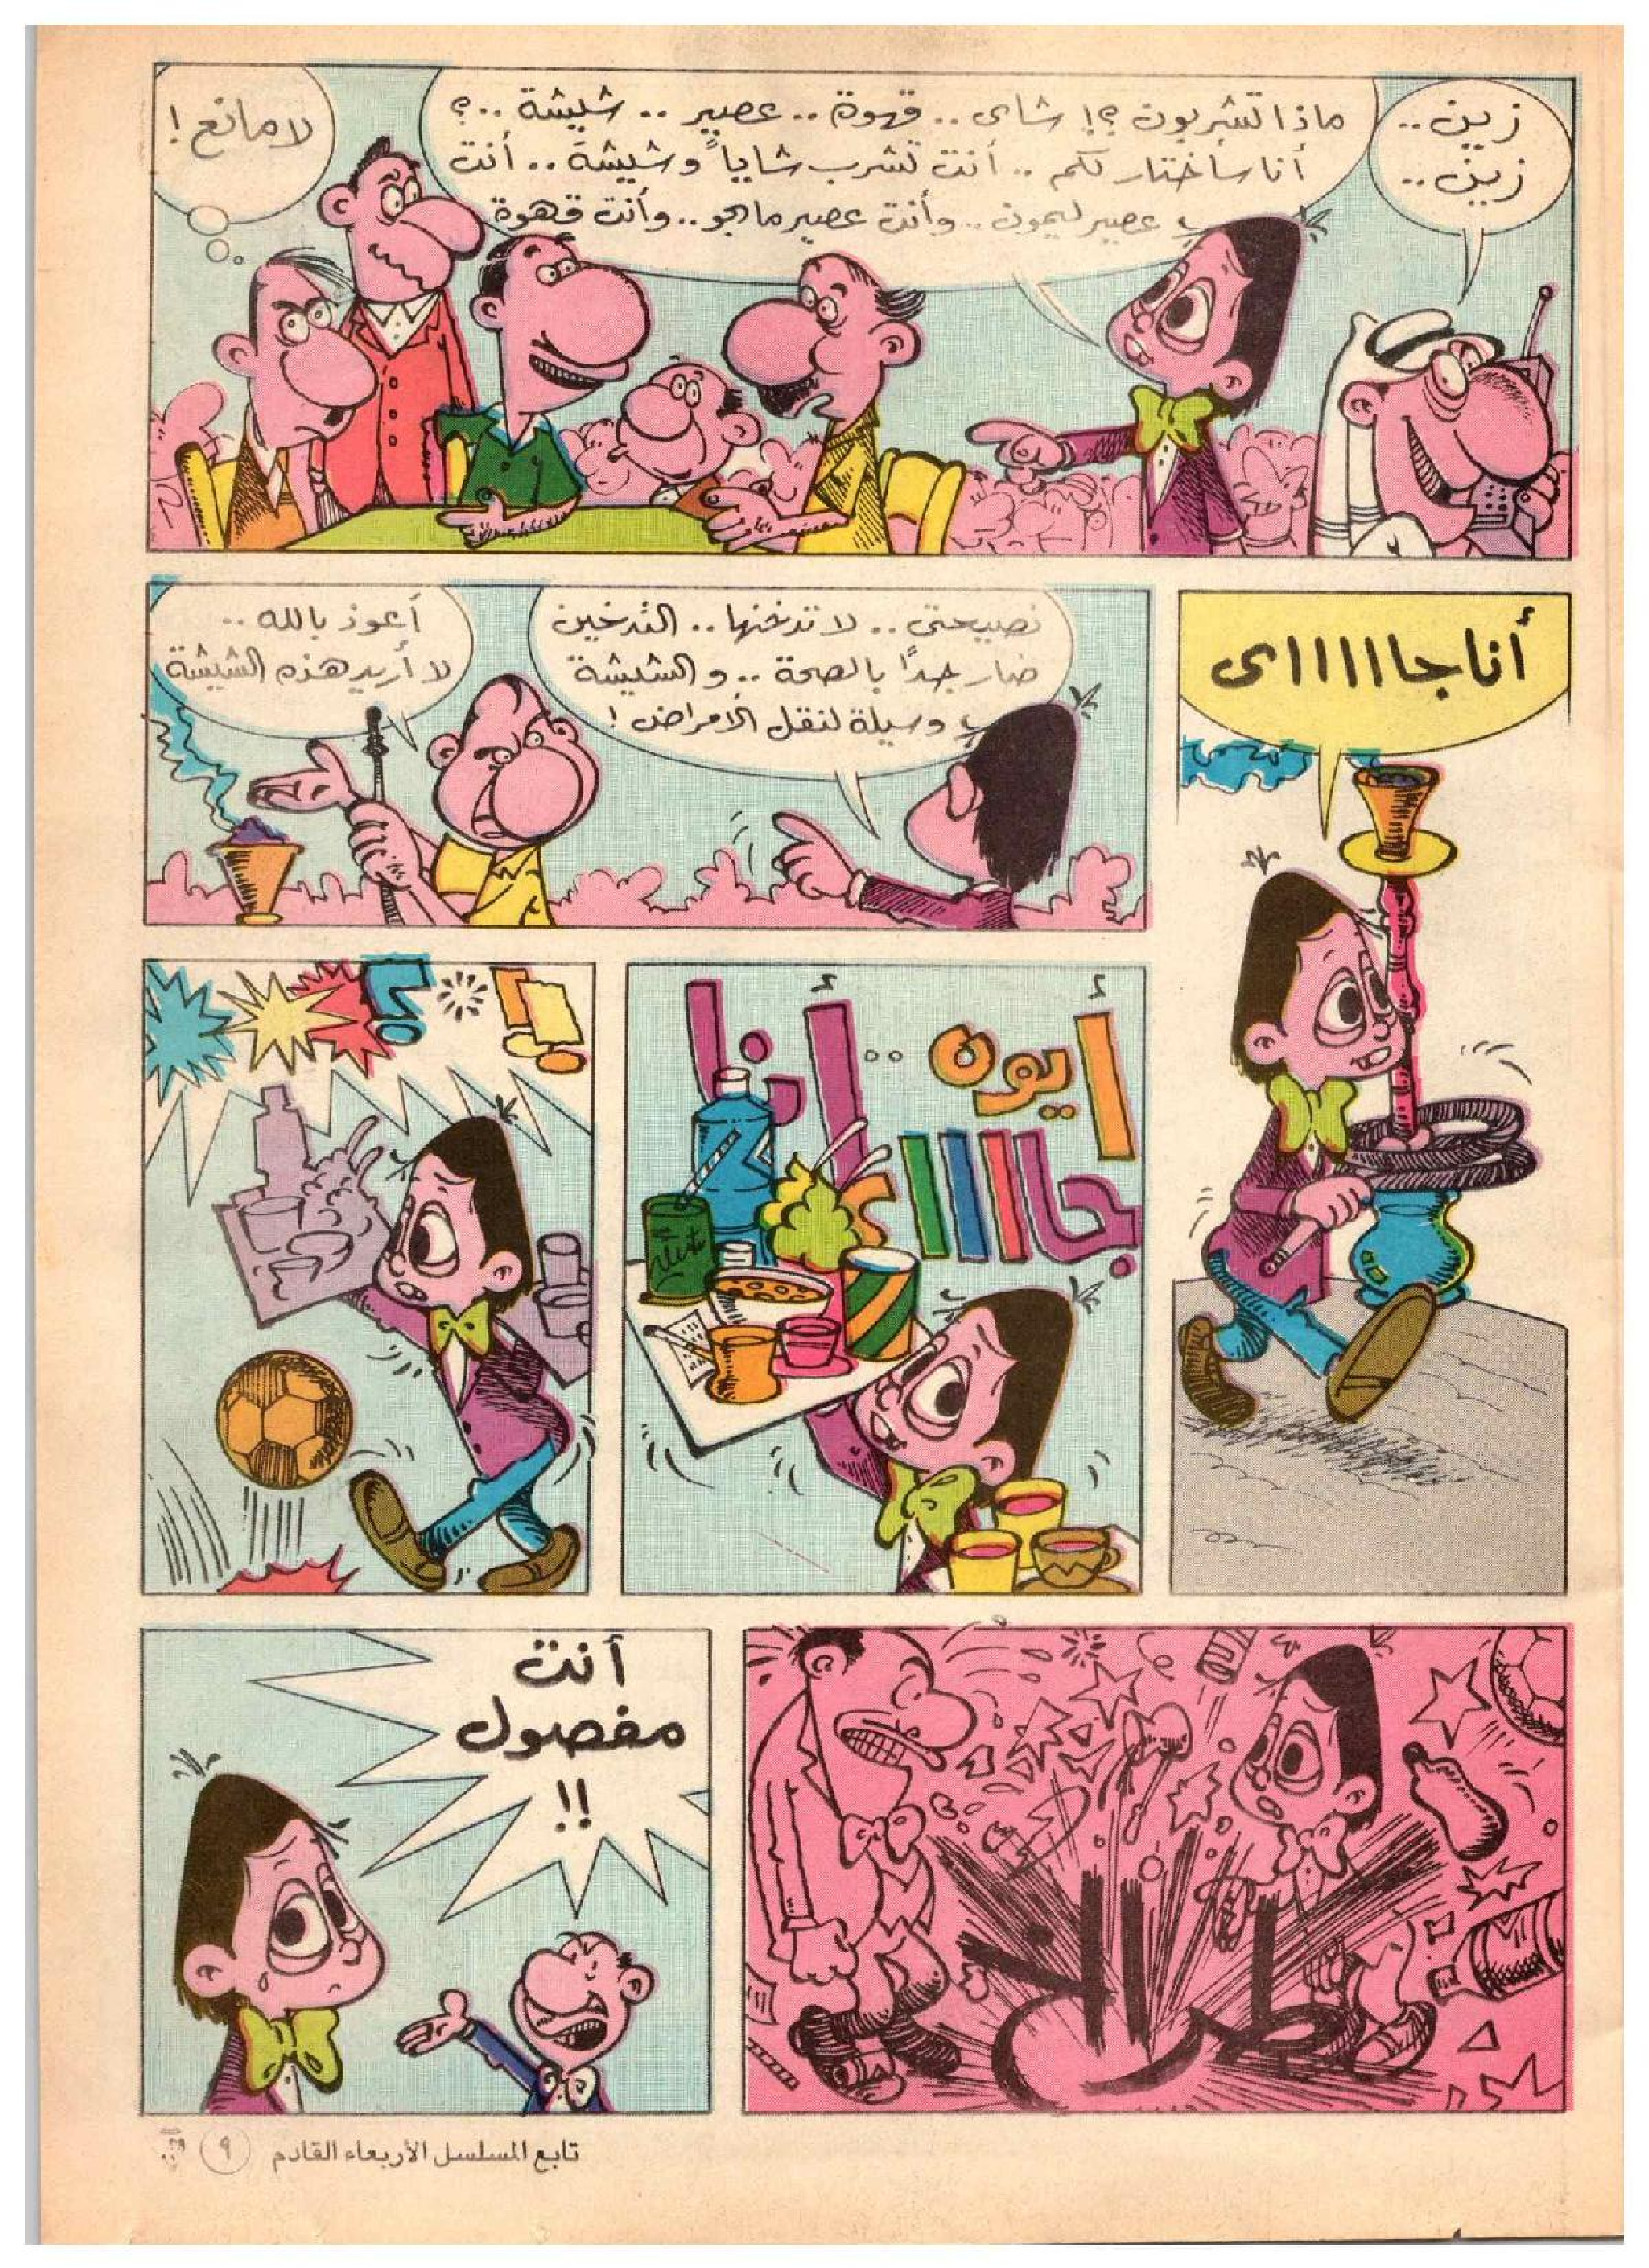 زين ..
زين ..
ماذا تشربون ؟! شاى .. قهوة .. عصير .. شيشة ..؟
أنا سأختار لكم .. أنت تشرب شاياً وشيشة .. أنت
عصير ليمون .. وأنت عصير مانجو .. وأنت قهوة
لا مانع !
أنا جااااااى
نصيحتى .. لا تدخنها .. التدخين
ضار جداً بالصحة .. والشيشة
وسيلة لنقل الأمراض !
أعوذ بالله ..
لا أريد هذه الشيشة
أيوه .. أنا
جااااى
!! ؟
طراااخ
أنت
مفصول
!!
تابع المسلسل الأربعاء القادم
٩